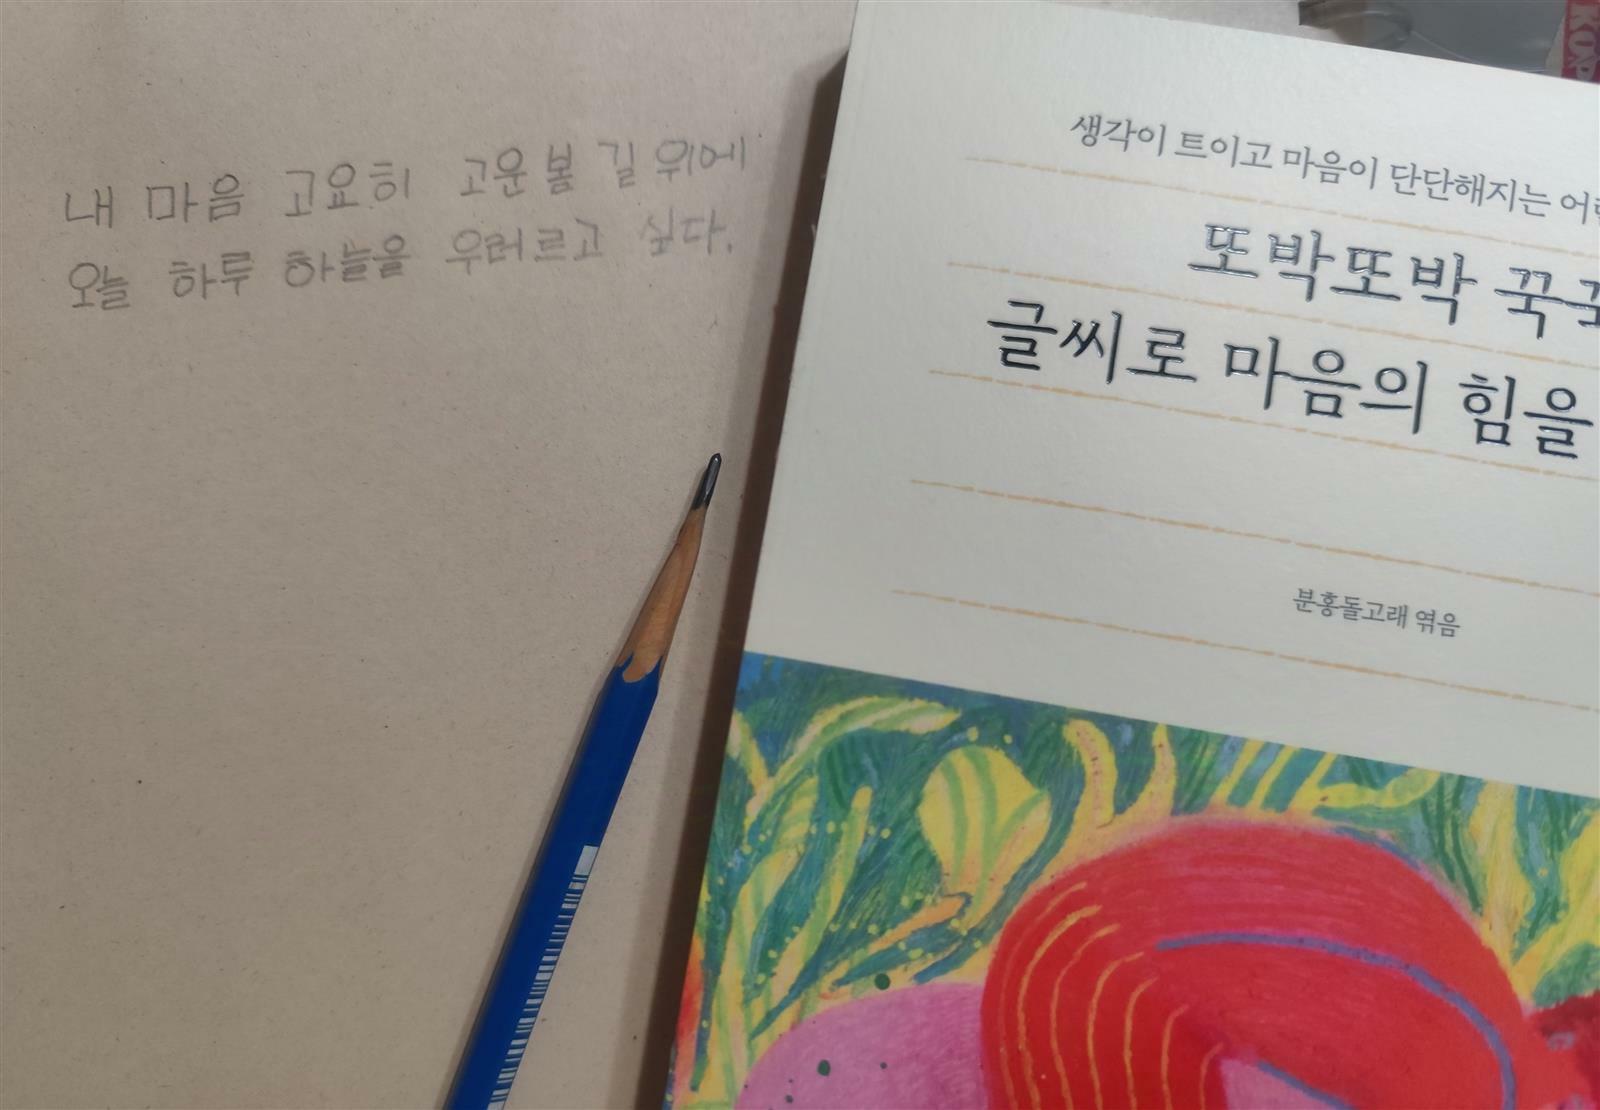 내 마음 고요히 고운 봄 길 위에
오늘 하루 하늘을 우러르고 싶다.
생각이 트이고 마음이 단단해지는
또박또박
글씨로 마음의 힘을
분홍돌고래 엮음